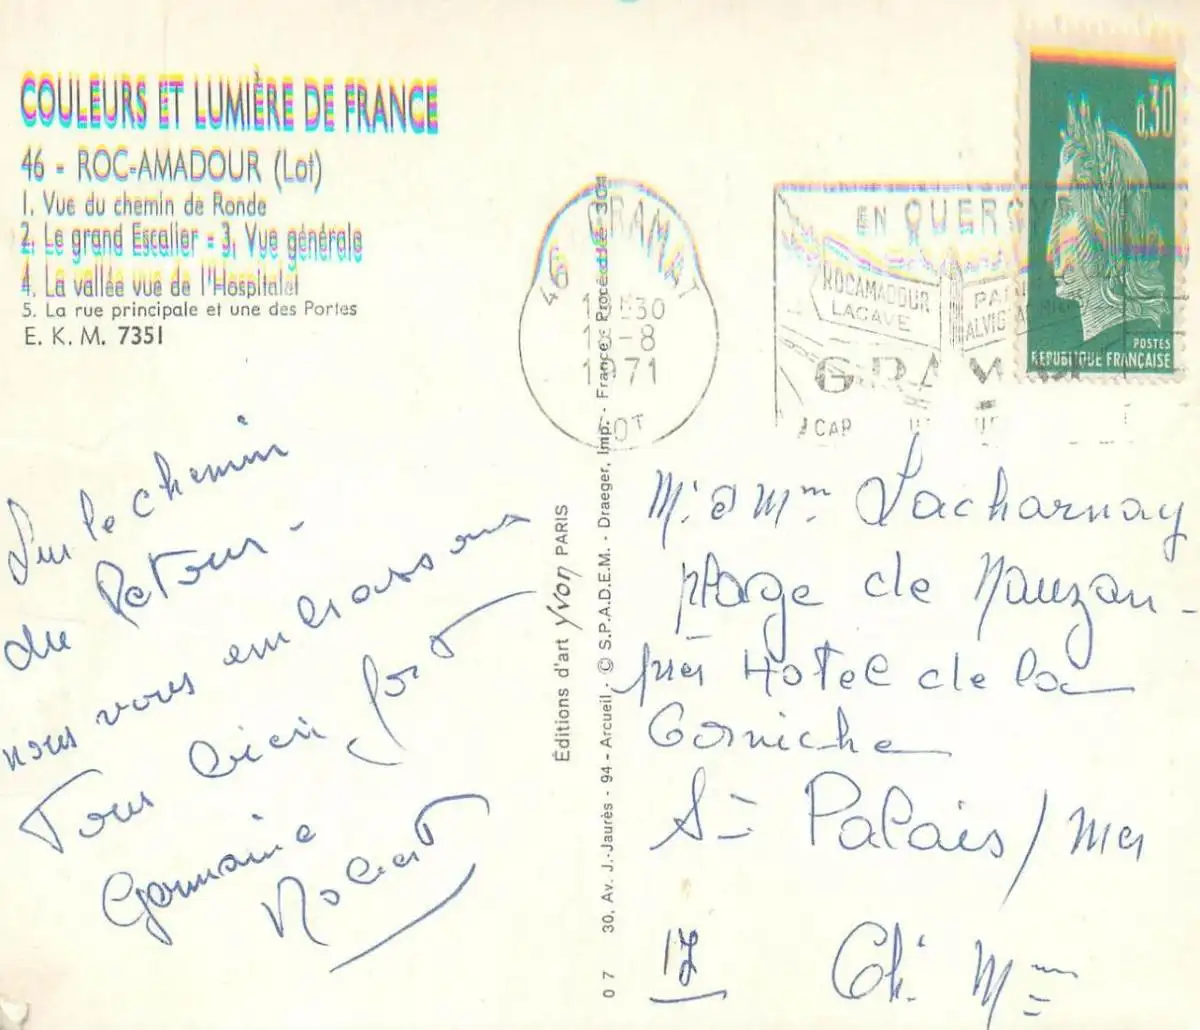 COULEURS ET LUMIÈRE DE FRANCE
46 - ROC-AMADOUR (Lot)
1. Vue du chemin de Ronde
2. Le grand Escalier - 3. Vue générale
4. La vallée vue de l'Hospitalet
5. La rue principale et une des Portes
E. K. M. 7351
Sur le chemin
du Retour -
nous vous embrassons
Tous bien fort
Germaine
Robert
Éditions d'art Yvon PARIS
0 7 30, Av. J.-Jaurès - 94 - Arcueil - © S.P.A.D.E.M. - Draeger, Imp. - France - Procédé
46 GRAMAT
30
-8
1971
LOT
EN QUERCY
ROCAMADOUR
LACAVE
GRAMAT
0,30
POSTES
REPUBLIQUE FRANÇAISE
Mr et Mme Lacharnay
plage de Nauzan -
près Hotel de la
Corniche
St Palais / mer
17 Ch. Mme